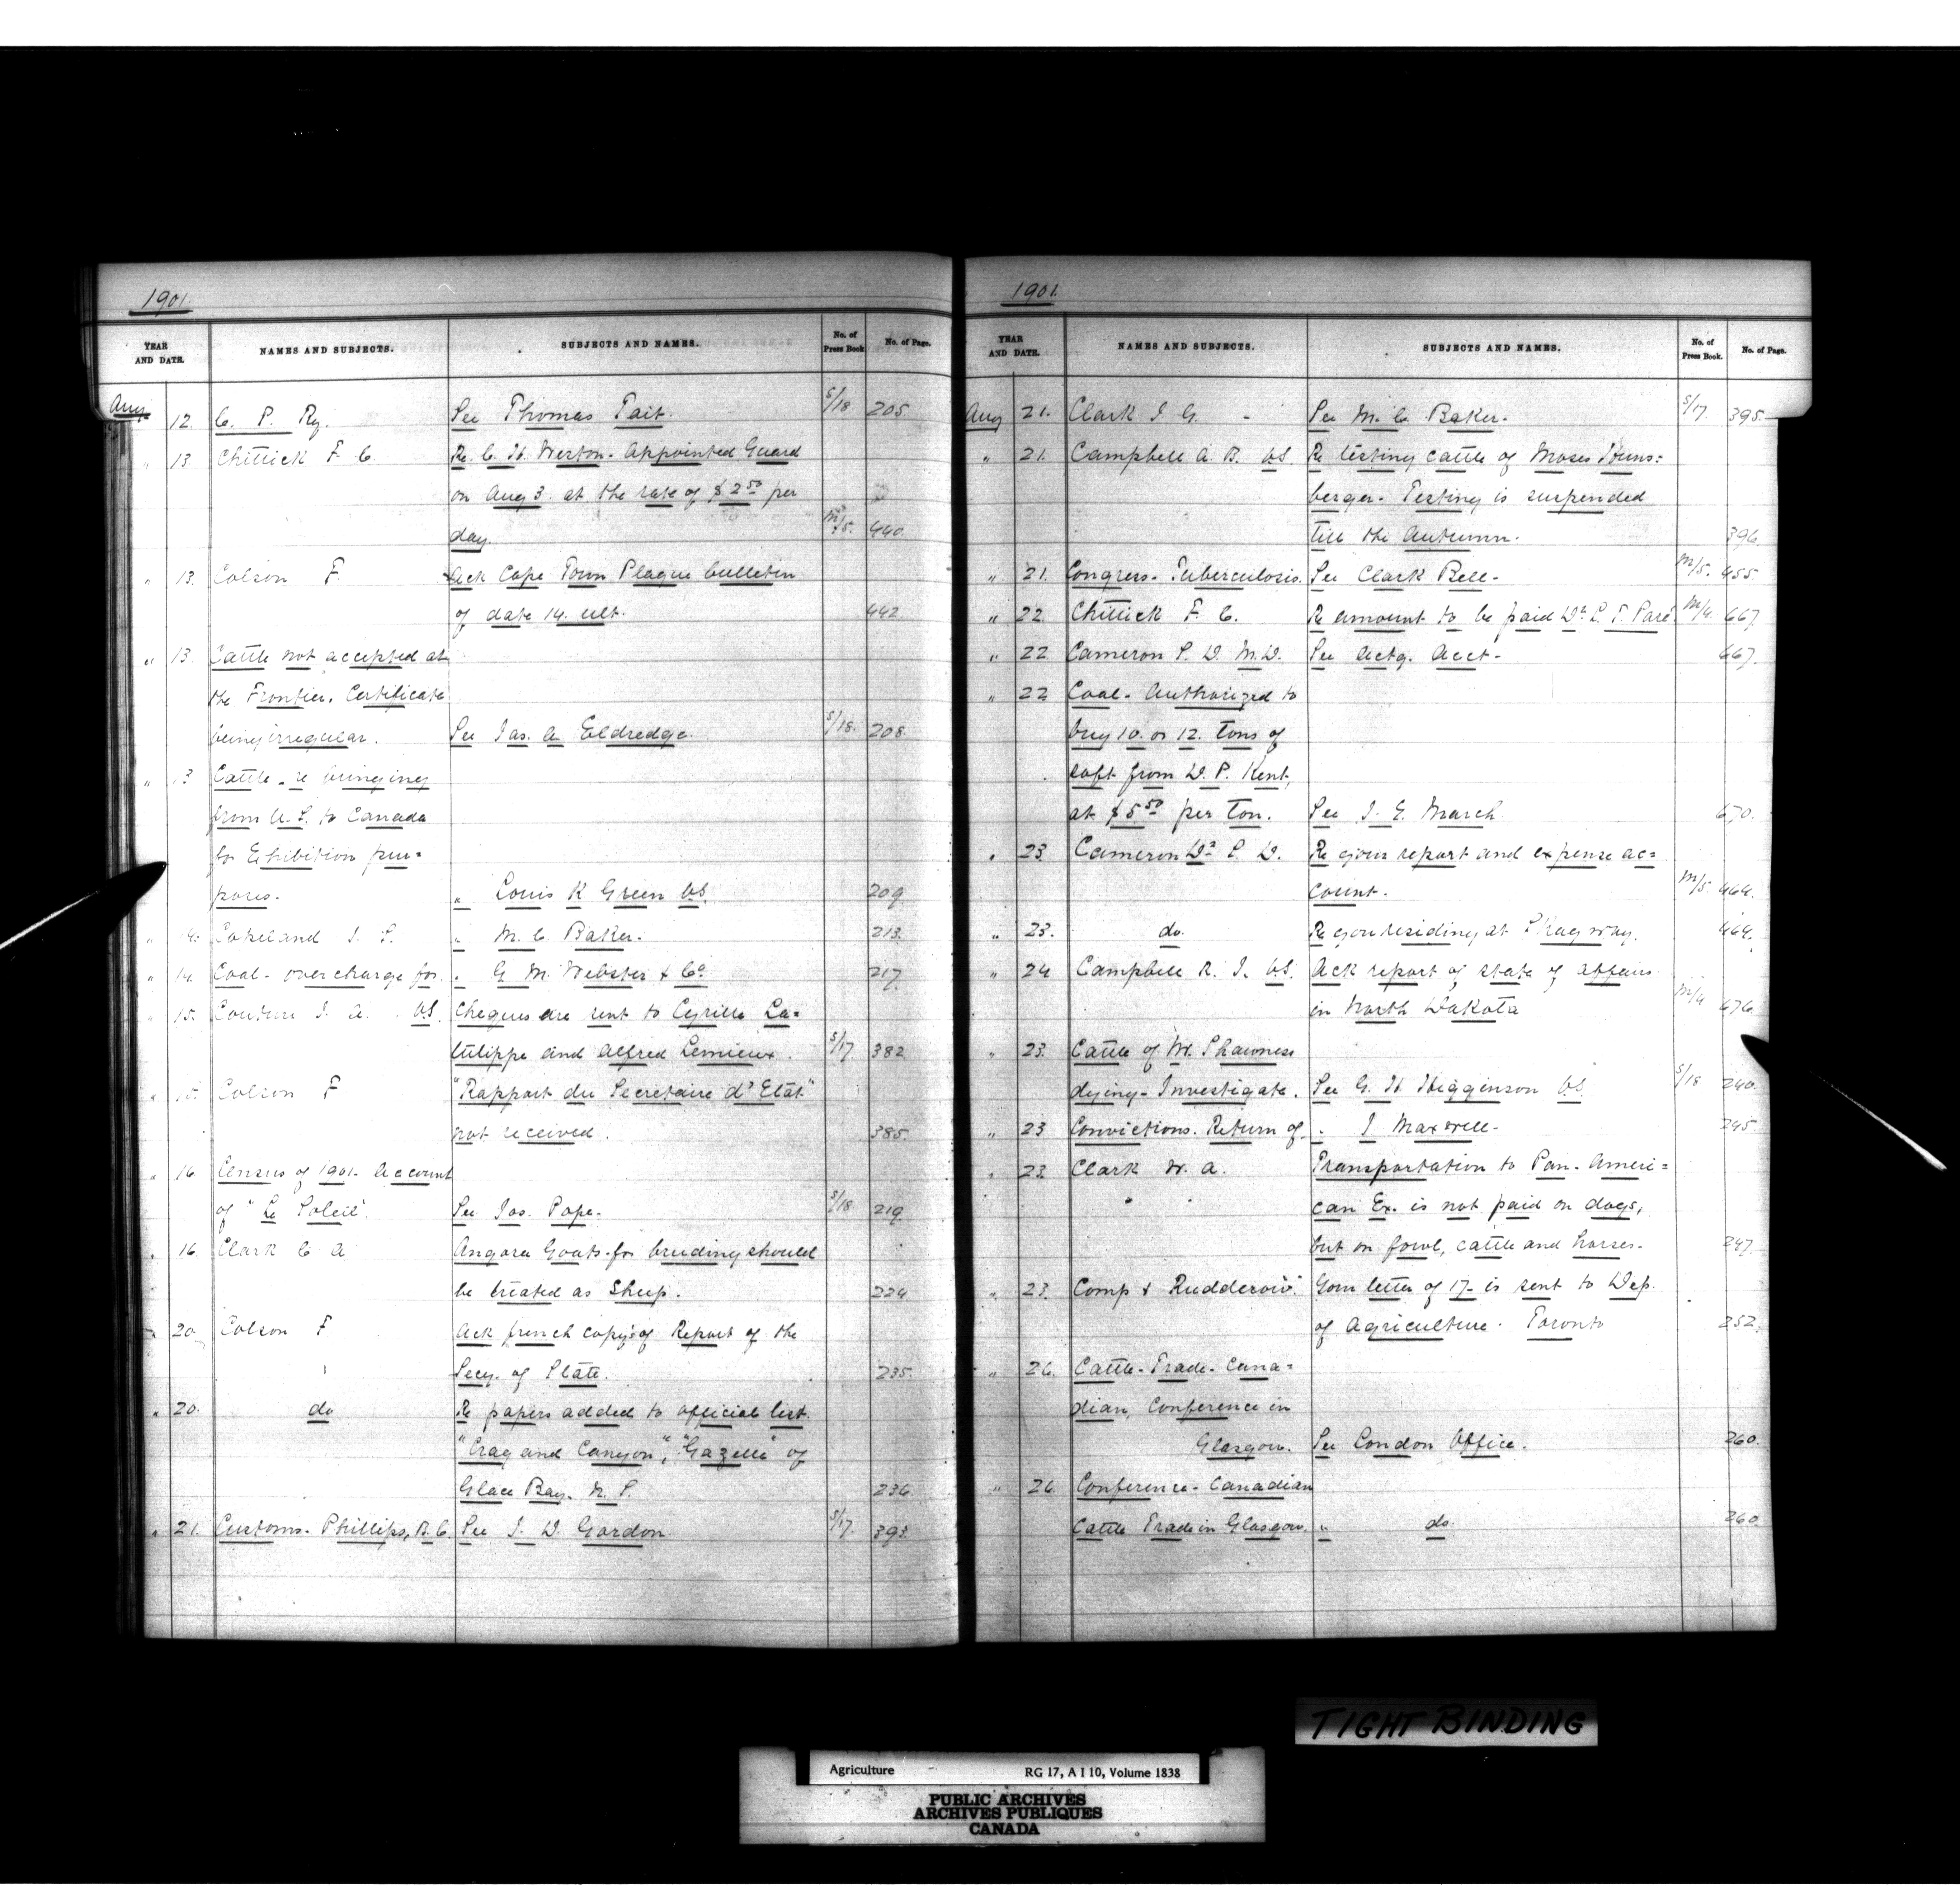 1901.
YEAR AND DATE. NAMES AND SUBJECTS. SUBJECTS AND NAMES. No. of Press Book. No. of Page.
Aug. 12. C. P. Ry. See Thomas Tait. S/18 205
" 13 Chittick F. C. Re. C. H. Weston. Appointed Guard
on Aug 3. at the rate of $2.50 per
day. M/5. 440.
" 13. Colson F. Ack Cape Town Plague bulletin
of date 14. ult. 442
" 13. Cattle not accepted at
the Frontier. Certificate
being irregular. See Jas. A Eldredge. S/18. 208
" 13 Cattle - re bringing
from U. S. to Canada
for Exhibition pur=
poses. " Louis K Green V.S. 209
" 14. Copeland J. S. " M. C. Baker. 213.
" 14. Coal - overcharge for. " G M. Webster & Co 217.
" 15. Couture J. A. V.S. Cheques are sent to Cyrille La=
tulippe and Alfred Lemieux. S/17 382
" 15. Colson F "Rapport du Secretaire d'Etat"
not received. 385.
" 16. Census of 1901. Account
of "Le Soleil". See Jos. Pope. S/18 219.
" 16. Clark C A Angora Goats for breeding should
be treated as Sheep. 224
" 20. Colson F Ack french copy's of Report of the
Secy. of State. 235.
" 20. do Re papers added to official list.
"Crag and Canyon", "Gazette" of
Glace Bay. N. S. 236
" 21. Customs. Phillips, B.C. See J. D. Gordon. S/17. 393.
1901.
YEAR AND DATE. NAMES AND SUBJECTS. SUBJECTS AND NAMES. No. of Press Book. No. of Page.
Aug 21. Clark J. G. - See M. C. Baker. S/17. 395.
" 21. Campbell A. B. V.S. Re testing cattle of Moses Houns=
berger. Testing is suspended
till the Autumn. 396.
" 21. Congress - Tuberculosis. See Clark Bell - M/5. 455.
" 22 Chittick F. C. Re amount to be paid Dr. L. T. Paré. M/4. 667
" 22 Cameron S. D. M.D. See Actg. Acct - 667.
" 22 Coal - Authorized to
buy 10. or 12. tons of
soft from D. P. Kent,
at $5.50 per Ton. See J. E. March 670.
" 23. Cameron Dr. S. D. Re your report and expense ac=
count. M/5. 464.
" 23. do. Re your residing at Skagway. 464.
" 24 Campbell R. J. V.S. Ack report of state of affairs
in North Dakota M/4 676
" 23. Cattle of Mr. Shawness
dying - Investigate. See G. H. Higginson V.S. S/18 240.
" 23 Convictions. Return of " J Maxwell - 245.
" 23. Clark W. A. Transportation to Pan - Ameri=
can Ex. is not paid on dogs,
but on fowl, cattle and horses. 247.
" 23. Comp & Rudderow. Your letter of 17- is sent to Dep.
of Agriculture. Toronto 252.
" 26. Cattle - Trade - Cana=
dian, Conference in
Glasgow. See London Office. 260.
" 26 Conference - Canadian
Cattle Trade in Glasgow. " do. 260.
TIGHT BINDING
Agriculture RG 17, A I 10, Volume 1838
PUBLIC ARCHIVES
ARCHIVES PUBLIQUES
CANADA